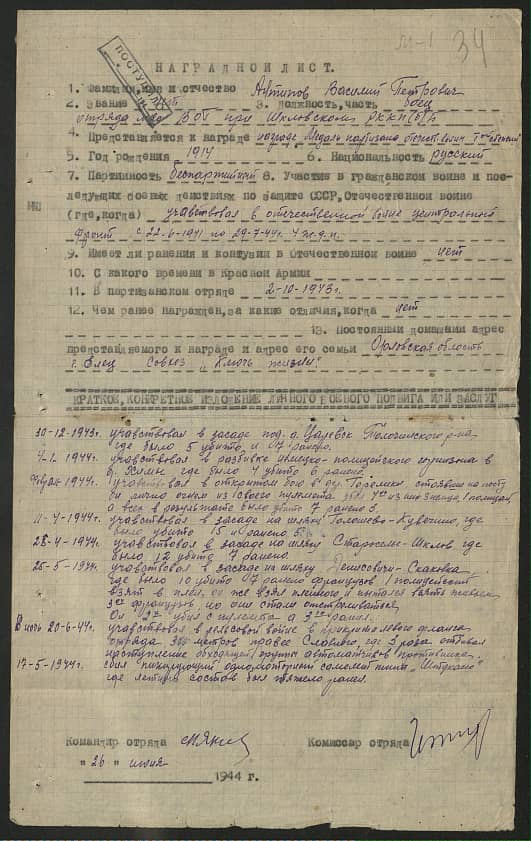 34
ПОСТУПИЛ
НАГРАДНОЙ ЛИСТ.
1. Фамилия, имя и отчество Антипов Василий Петрович
2. Звание 3. Должность, часть боец
отряда ВОГ при Шкловском РККП(б)Б
4. Представляется к награде Медаль партизана отечествен
5. Год рождения 1914 6. Национальность русский
7. Партийность беспартийный 8. Участие в гражданской войне и пос-
ледующих боевых действиях по защите СССР, Отечественной войне
(где, когда) учавствовал в отечественной войне центральный
фронт с 22-6-1941 по 29-7-44г
9. Имеет ли ранения и контузии в Отечественной войне нет
10. С какого времени в Красной Армии
11. В партизанском отряде 2-10-1943г.
12. Чем ранее награжден, за какие отличия, когда нет
13. Постоянный домашний адрес
представляемого к награде и адрес его семьи Орловская область
г. Елец Совхоз „Ключь жизни"
КРАТКОЕ, КОНКРЕТНОЕ ИЗЛОЖЕНИЕ ЛИЧНОГО БОЕВОГО ПОДВИГА ИЛИ ЗАСЛУГ
30-12-1943г. учавствовал в засаде под д. Царевск р-на
где было 5 убито и 17 ранено.
4-1-1944г. учавствовал в разбивке немецко-полицейского гарнизона в
где было 4 убито 6 ранено.
1944г. учавствовал в открытом бою в д. стоявши на посту
он лично огнем из своего пулемета убил
а всех в результате было убито 7 ранено 5.
11-4-1944г. учавствовал в засаде на шляху где
было убито 15 и ранено 5
28-4-1944г. учавствовал в засаде на шляху Староселье-Шклов где
было 12 убито 7 ранено.
25-5-1944г. учавствовал в засаде на шляху Денисовичи-
где было 10 убито 17 ранено французов 1
взят в плен, он же взял пленного и пытался взять
3ех французов, но они стали отстреливаться
Он 2ух убил с пулемета а 3его ранил.
В ночь 20-6-44г. учавствовал в рельсовой войне в прикрытие левого фланга
отряда метров правее Славного, где 3 раза отбивал
наступление обходящей группы автоматчиков противника.
17-5-1944г. сбил пикирующий одномоторный самолет типа „Штукас"
где летный состав был тяжело ранен.
Командир отряда Комиссар отряда
"26" июня
1944 г.